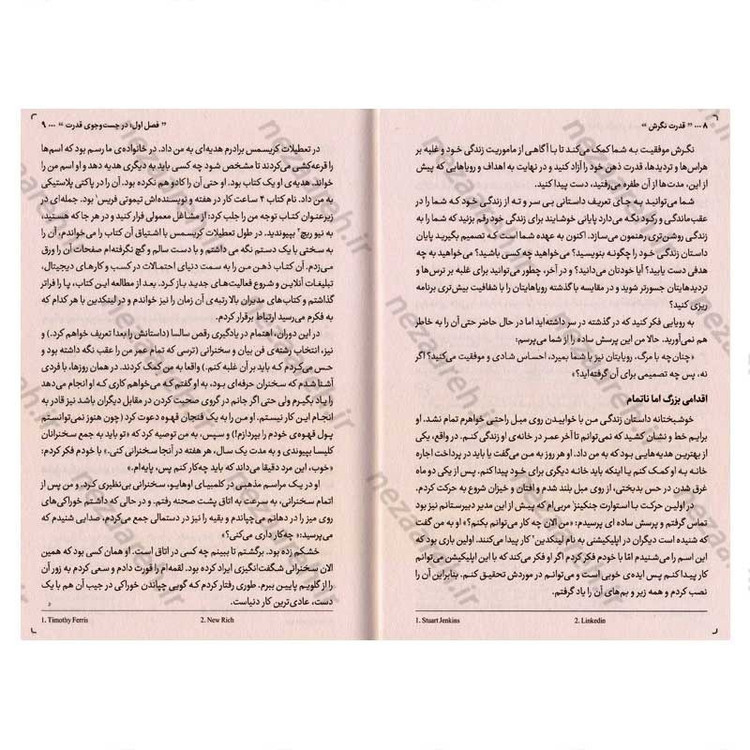 ۸ ... " قدرت نگرش "
نگرش موفقیت به شما کمک می‌کند تا با آگاهی از ماموریت زندگی خود و غلبه بر
هراس‌ها و تردیدها، قدرت ذهن خود را آزاد کنید و در نهایت به اهداف و رویاهایی که پیش
از این، مدت‌ها از آن طفره می‌رفتید، دست پیدا کنید.
شما می‌توانید به جای تعریف داستانی بی سر و ته از زندگی خود که شما را در
عقب‌ماندگی و رکود نگه می‌دارد پایانی خوشایند برای زندگی خود رقم بزنید که شما را به
زندگی روشن‌تری رهنمون می‌سازد. اکنون به عهده شما است که تصمیم بگیرید پایان
داستان زندگی خود را چگونه بنویسید؟ می‌خواهید چه کسی باشید؟ می‌خواهید به چه
هدفی دست یابید؟ آیا خودتان می‌دانید؟ و در آخر، چطور می‌توانید برای غلبه بر ترس‌ها و
تردیدهایتان جسورتر شوید و در مقایسه با گذشته رویاهایتان را با شفافیت بیش‌تری برنامه
ریزی کنید؟
به رویایی فکر کنید که در گذشته در سر داشته‌اید اما در حال حاضر حتی آن را به خاطر
هم نمی‌آورید. حالا من این پرسش ساده را از شما می‌پرسم:
«چنان‌چه با مرگ، رویایتان نیز با شما بمیرد، احساس شادی و موفقیت می‌کنید؟ اگر
نه، پس چه تصمیمی برای آن گرفته‌اید؟»
اقدامی بزرگ اما ناتمام
خوشبختانه داستان زندگی من با خوابیدن روی مبل راحتی خواهرم تمام نشد. او
برایم خط و نشان کشید که نمی‌توانم تا آخر عمر در خانه‌ی او زندگی کنم. در واقع، یکی
از بهترین هدیه‌هایی بود که به من داد. او هر روز به من می‌گفت یا باید در پرداخت اجاره
خانه به او کمک کنم یا اینکه باید خانه دیگری برای خود پیدا کنم. پس از یکی دو ماه
غرق شدن در حس بدبختی، از روی مبل بلند شدم و افتان و خیزان شروع به حرکت کردم.
در اولین حرکت با استوارت جنکینز¹ مربی‌ام که پیش از این مدیر دبیرستانم نیز بود
تماس گرفتم و پرسش ساده ای پرسیدم: «من الان چه کار می‌توانم بکنم؟» او به من گفت
که شنیده است دیگران در اپلیکیشنی به نام لینکدین² کار پیدا می‌کنند. اولین باری بود که
این اسم را می‌شنیدم امّا با خودم فکر کردم اگر او فکر می‌کند که با این اپلیکیشن می‌توانم
کار پیدا کنم پس ایده‌ی خوبی است و می‌توانم در موردش تحقیق کنم. بنابراین آن را
نصب کردم و همه زیر و بم‌های آن را یاد گرفتم.
1. Stuart Jenkins 2. Linkedin
" فصل اول: در جست‌وجوی قدرت " ... ۹
در تعطیلات کریسمس برادرم هدیه‌ای به من داد. در خانواده‌ی ما رسم بود که اسم‌ها
را قرعه‌کشی می‌کردند تا مشخص شود چه کسی باید به دیگری هدیه دهد و او اسم من را
خواند. هدیه‌ی او یک کتاب بود. او حتی آن را کادو هم نکرده بود. آن را در پاکتی پلاستیکی
به من داد. نام کتاب ۴ ساعت کار در هفته و نویسنده‌اش تیموتی فریس¹ بود. جمله‌ای در
زیرعنوان کتاب توجه من را جلب کرد: از مشاغل معمولی فرار کنید و در هر جا که هستید،
به نیو ریچ² بپیوندید. در طول تعطیلات کریسمس با اشتیاق آن کتاب را می‌خواندم، آن را
به سختی با یک دستم نگه می داشتم و با دست سالم و گچ نگرفته‌ام صفحات آن را ورق
می‌زدم. آن کتاب ذهن من را به سمت دنیای احتمالات در کسب و کارهای دیجیتال،
تبلیغات آنلاین و شروع فعالیت‌های جدید باز کرد. بعد از مطالعه این کتاب، پا را فراتر
گذاشتم و کتاب‌های مدیران بالا رتبه‌ی آن زمان را نیز خواندم و در لینکدین با هر کدام که
به فکرم می‌رسید ارتباط برقرار کردم.
در این دوران، اهتمام در یادگیری رقص سالسا (داستانش را بعدا تعریف خواهم کرد.) و
نیز، انتخاب رشته‌ی فن بیان و سخنرانی (ترسی که تمام عمر من را عقب نگه داشته بود و
حس می‌کردم که باید بر آن غلبه کنم.) واقعا به من کمک کردند. در همان روزها، با فردی
آشنا شدم که سخنران حرفه‌ای بود. به او گفتم که می‌خواهم کاری که او انجام می‌دهد
را یاد بگیرم ولی حتی اگر جانم در گروی صحبت کردن در مقابل دیگران باشد نیز قادر به
انجام این کار نیستم. او من را به یک فنجان قهوه دعوت کرد (چون هنوز نمی‌توانستم
پول قهوه‌ی خودم را بپردازم!) و سپس، به من توصیه کرد که «تو باید به جمع سخنرانان
کلیسا بپیوندی و به مدت یک سال، هر هفته در آنجا سخنرانی کنی.» با خودم فکر کردم:
«خوب، این مرد دقیقا می‌داند که باید چه‌کار کنم پس، پایه‌ام.»
او در یک مراسم مذهبی در کلمبیای اوهایو، سخنرانی بی‌نظیری کرد. و من پس از
اتمام سخنرانی، به سرعت به اتاق پشت صحنه رفتم. و در حالی که داشتم خوراکی‌های
روی میز را در دهانم می‌چپاندم و بقیه را نیز در دستمالی جمع می‌کردم، صدایی شنیدم که
می‌پرسید: «چه‌کار داری می‌کنی؟»
خشکم زده بود. برگشتم تا ببینم چه کسی در اتاق است. او همان کسی بود که همین
الان سخنرانی شگفت‌انگیزی ایراد کرده بود. لقمه‌ام را قورت دادم و سعی کردم به زور آن
را از گلویم پایین ببرم. طوری رفتار کردم که گویی چپاندن خوراکی در جیب آن هم با یک
دست، عادی‌ترین کار دنیاست.
1. Timothy Ferris 2. New Rich
nezareh.ir